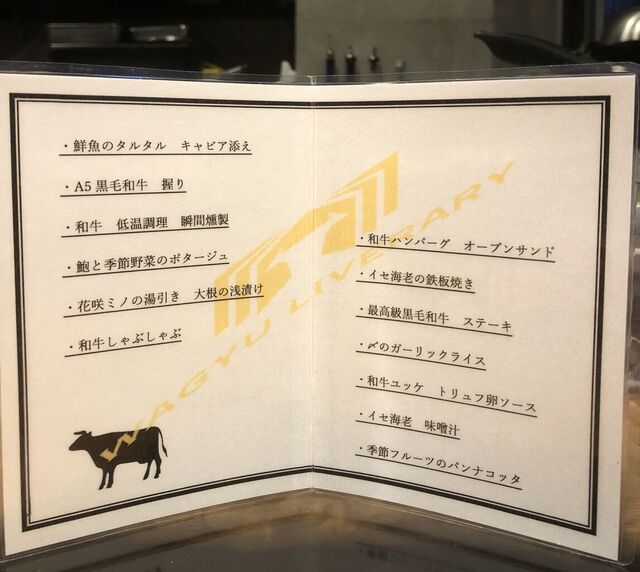 ・鮮魚のタルタル　キャビア添え
・A5黒毛和牛　握り
・和牛　低温調理　瞬間燻製
・鮑と季節野菜のポタージュ
・花咲ミノの湯引き　大根の浅漬け
・和牛しゃぶしゃぶ
・和牛ハンバーグ　オーブンサンド
・イセ海老の鉄板焼き
・最高級黒毛和牛　ステーキ
・〆のガーリックライス
・和牛ユッケ　トリュフ卵ソース
・イセ海老　味噌汁
・季節フルーツのパンナコッタ
WAGYU LIVERARY